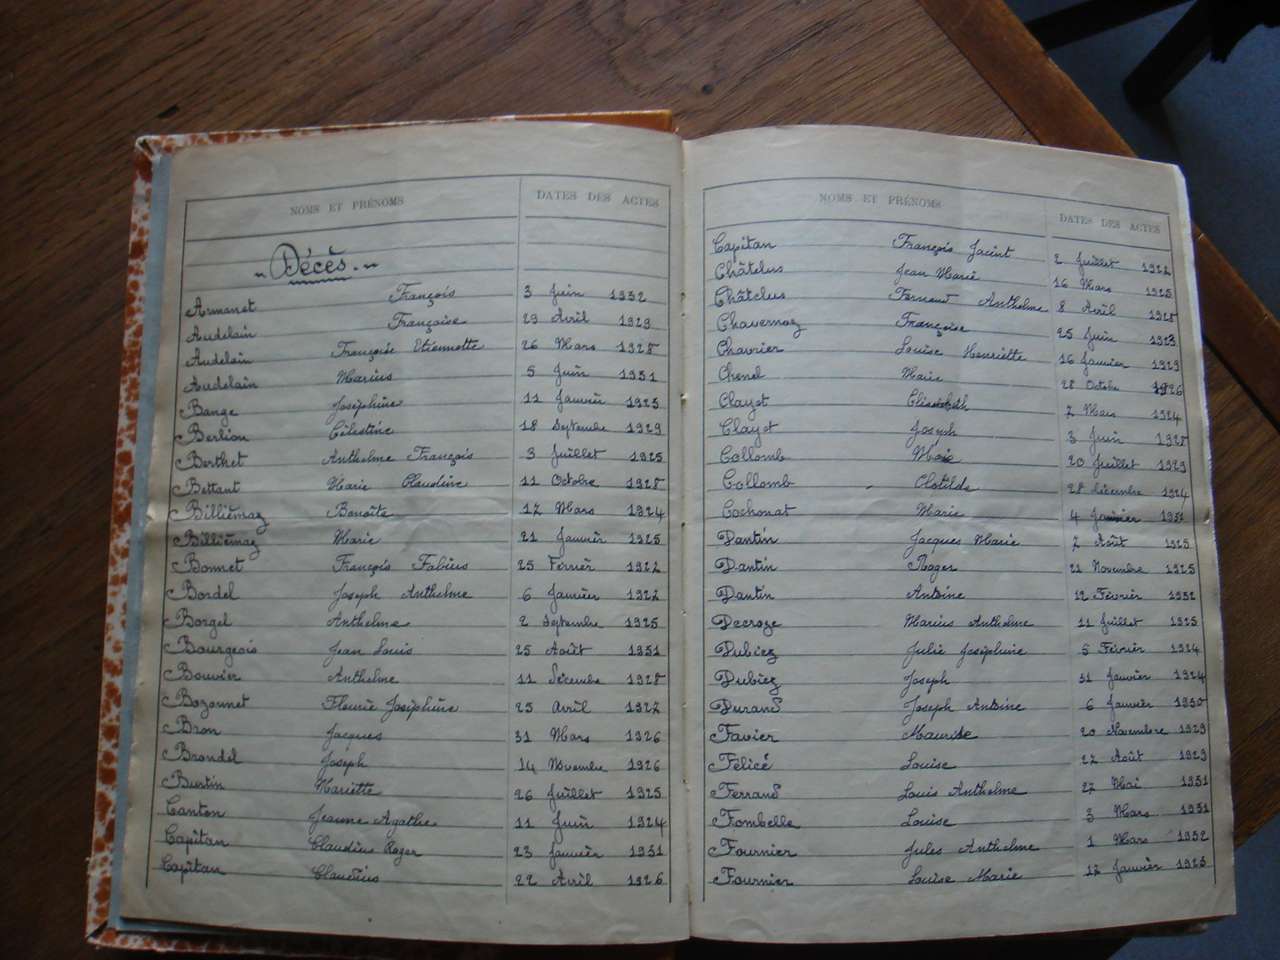 NOMS ET PRÉNOMS DATES DES ACTES
Décès.
Armanet François 3 Juin 1932
Audelain Françoise 29 Avril 1929
Audelain Françoise Etiennette 26 Mars 1928
Audelain Marius 5 Juin 1931
Bange Joséphine 11 Janvier 1925
Berlion Célestine 18 Septembre 1929
Berthet Anthelme François 3 Juillet 1925
Bettant Marie Claudine 11 Octobre 1928
Billiémaz Benoîte 17 Mars 1924
Billiémaz Marie 21 Janvier 1925
Bonnet François Fabius 25 Février 1922
Bordel Joseph Anthelme 6 Janvier 1922
Borgel Anthelme 2 Septembre 1925
Bourgeois Jean Louis 25 Août 1931
Bouvier Anthelme 11 Décembre 1928
Bozonnet Fleurie Joséphine 25 Avril 1922
Bron Jacques 31 Mars 1926
Brondel Joseph 14 Novembre 1926
Burtin Mariette 26 Juillet 1925
Canton Jeanne Agathe 11 Juin 1924
Capitan Claudius Roger 23 Janvier 1931
Capitan Claudius 22 Avril 1926
NOMS ET PRÉNOMS DATES DES ACTES
Capitan François Jacint 2 Juillet 1922
Châtelus Jean Marie 16 Mars 1925
Châtelus Fernand Anthelme 8 Avril 1928
Chavernoz Françoise 25 Juin 1923
Chavrier Louise Henriette 16 Janvier 1929
Chenel Marie 28 Octobre 1926
Clayet Elisabeth 7 Mars 1924
Clayet Joseph 3 Juin 1928
Collomb Marie 20 Juillet 1929
Collomb Clotilde 28 décembre 1924
Cochonat Marie 4 Janvier
Dantin Jacques Marie 7 Août 1925
Dantin Roger 21 Novembre 1925
Dantin Antoine 12 Février 1932
Decroze Marius Anthelme 11 Juillet 1925
Dubiez Julie Joséphine 5 Février 1924
Dubiez Joseph 31 Janvier 1924
Durand Joseph Antoine 6 Janvier 1930
Favier Maurise 20 Novembre 1929
Félicé Louise 22 Août 1929
Ferrand Louis Anthelme 27 Mai 1931
Fombelle Louise 3 Mars 1931
Fournier Jules Anthelme 1 Mars 1932
Fournier Louise Marie 17 Janvier 1923